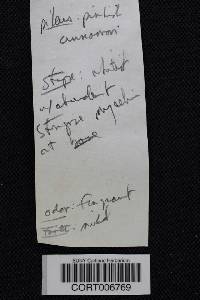 pileus: pinkish
cinnamon
Stipe: whitish
w/ abundant
strigose mycelium
at base
odor: fragrant
taste: mild
SUNY Cortland Herbarium
CORT006769